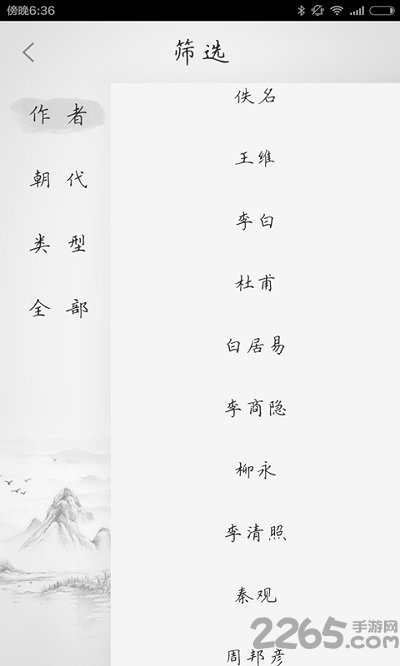 傍晚6:36
筛选
作者
朝代
类型
全部
佚名
王维
李白
杜甫
白居易
李商隐
柳永
李清照
秦观
周邦彦
2265.com
手游网